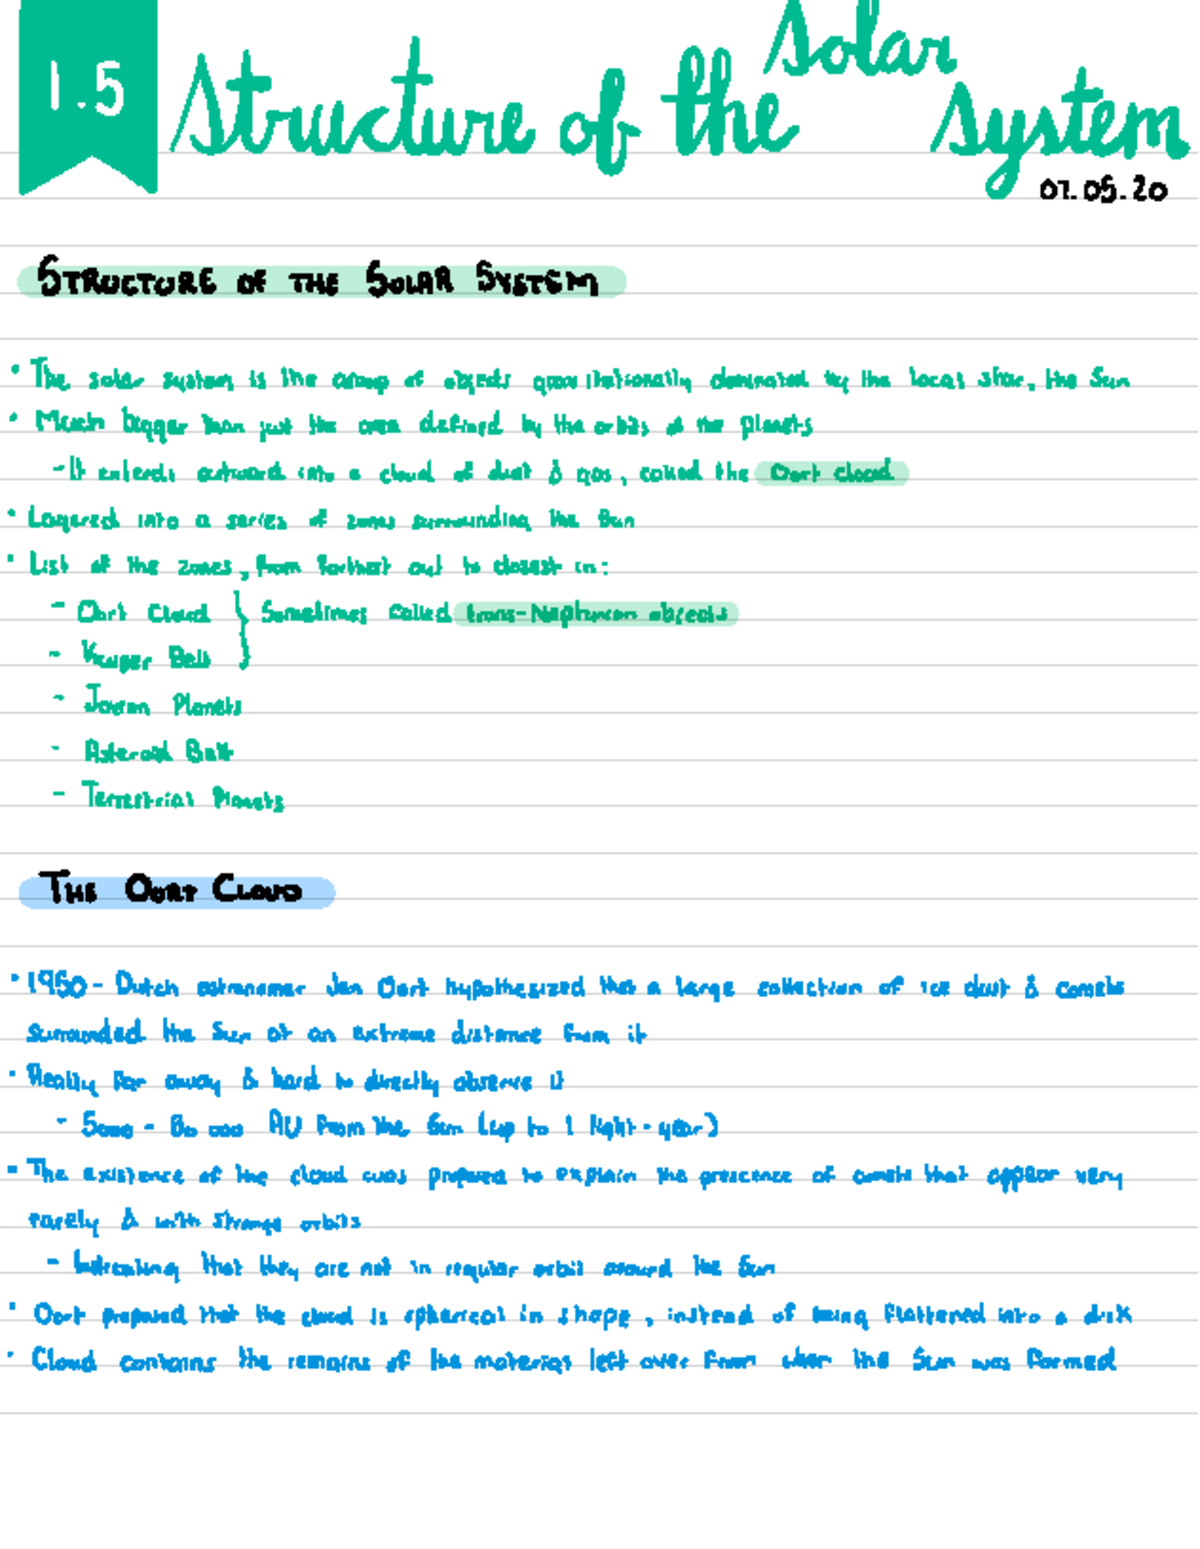 1.5 Structure of the Solar System
07.05.20
STRUCTURE OF THE SOLAR SYSTEM
• The solar system is the group of objects gravitationally dominated by the local star, the Sun
• Much bigger than just the area defined by the orbits of the planets
- It extends outward into a cloud of dust & gas, called the Oort cloud
• Layered into a series of zones surrounding the Sun
• List of the zones, from farthest out to closest in:
- Oort Cloud } Sometimes called trans-Neptunian objects
- Kuiper Belt
- Jovian Planets
- Asteroid Belt
- Terrestrial Planets
THE OORT CLOUD
• 1950 - Dutch astronomer Jan Oort hypothesized that a large collection of ice dust & comets
surrounded the Sun at an extreme distance from it
• Really far away & hard to directly observe it
- 5000 - 80 000 AU from the Sun (up to 1 light-year)
• The existence of the cloud was proposed to explain the presence of comets that appear very
rarely & with strange orbits
- Indicating that they are not in regular orbit around the Sun
• Oort proposed that the cloud is spherical in shape, instead of being flattened into a disk
• Cloud contains the remains of the material left over from when the Sun was formed